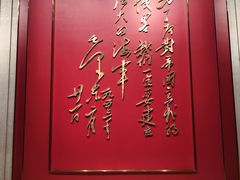 为了反对帝国主义的
侵略，我们一定要建立
强大的海军
毛泽东
一九五三年
二月廿一日